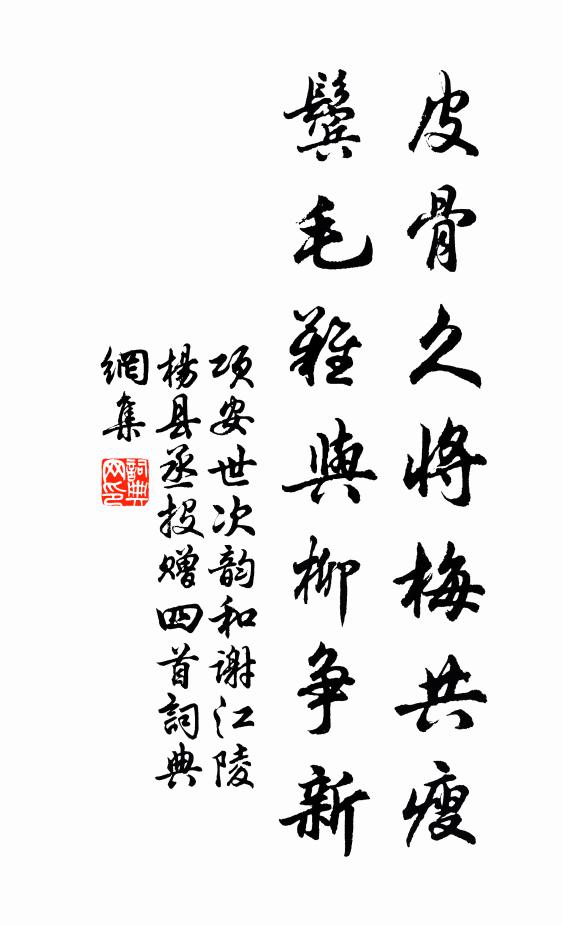 皮骨久將梅共瘦
鬓毛難與柳争新
项安世次韵和谢江陵
楊县丞投赠四首詞典
網集
詞典
网印